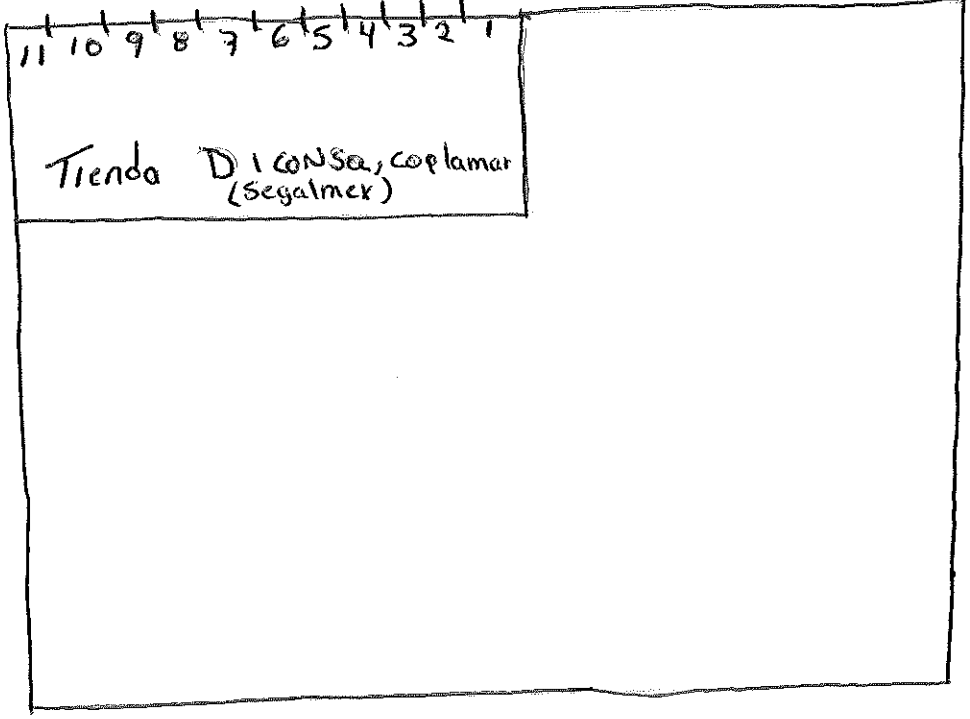 11 10 9 8 7 6 5 4 3 2 1
Tienda DiCONSa, coplamar
(Segalmex)